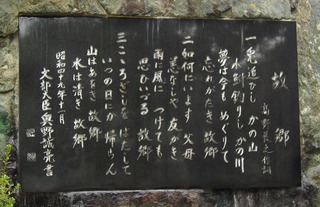 故郷
高野辰之作詞
一 兎追ひし かの山
小鮒釣りし かの川
夢は今も めぐりて
忘れがたき 故郷
二 如何にいます 父母
恙なしや 友がき
雨に風に つけても
思ひいづる 故郷
三 こころざしを はたして
いつの日にか 帰らん
山はあをき 故郷
水は清き 故郷
昭和四十九年十一月
文部大臣 奥野誠亮書